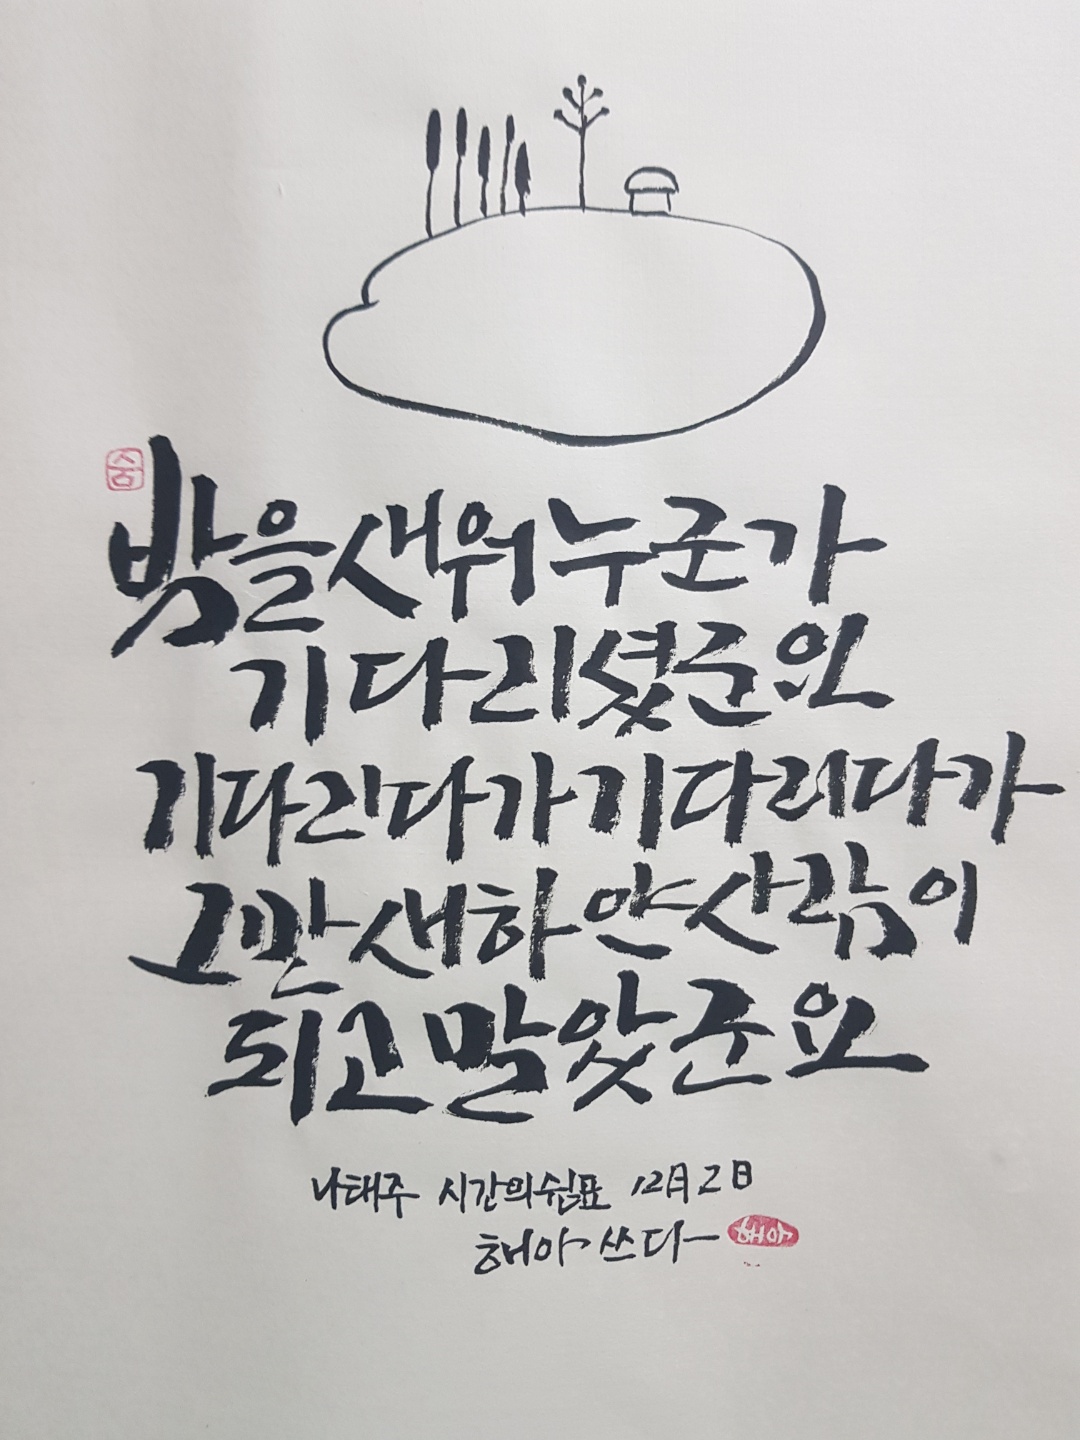 밤을새워누군가
기다리셨군요
기다리다가기다리다가
그만새하얀사람이
되고말았군요
나태주 시간의쉼표 12月2日
해아 쓰다
해아